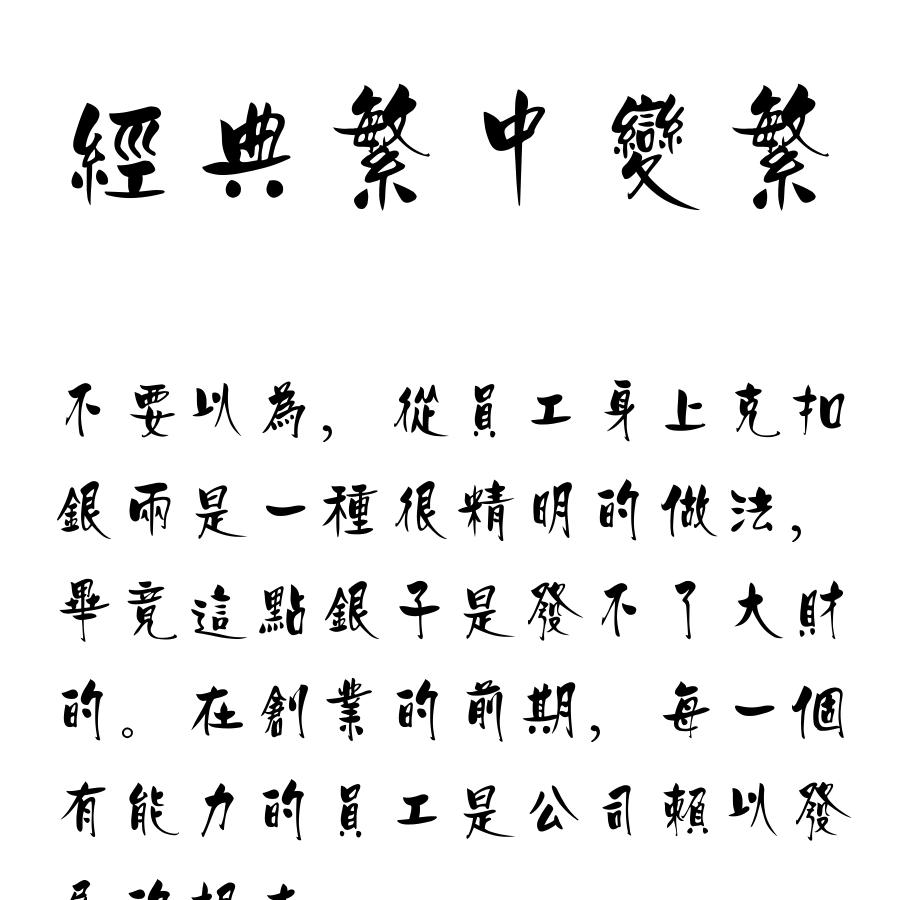 經典繁中變繁
不要以為，從員工身上克扣
銀兩是一種很精明的做法，
畢竟這點銀子是發不了大財
的。在創業的前期，每一個
有能力的員工是公司賴以發